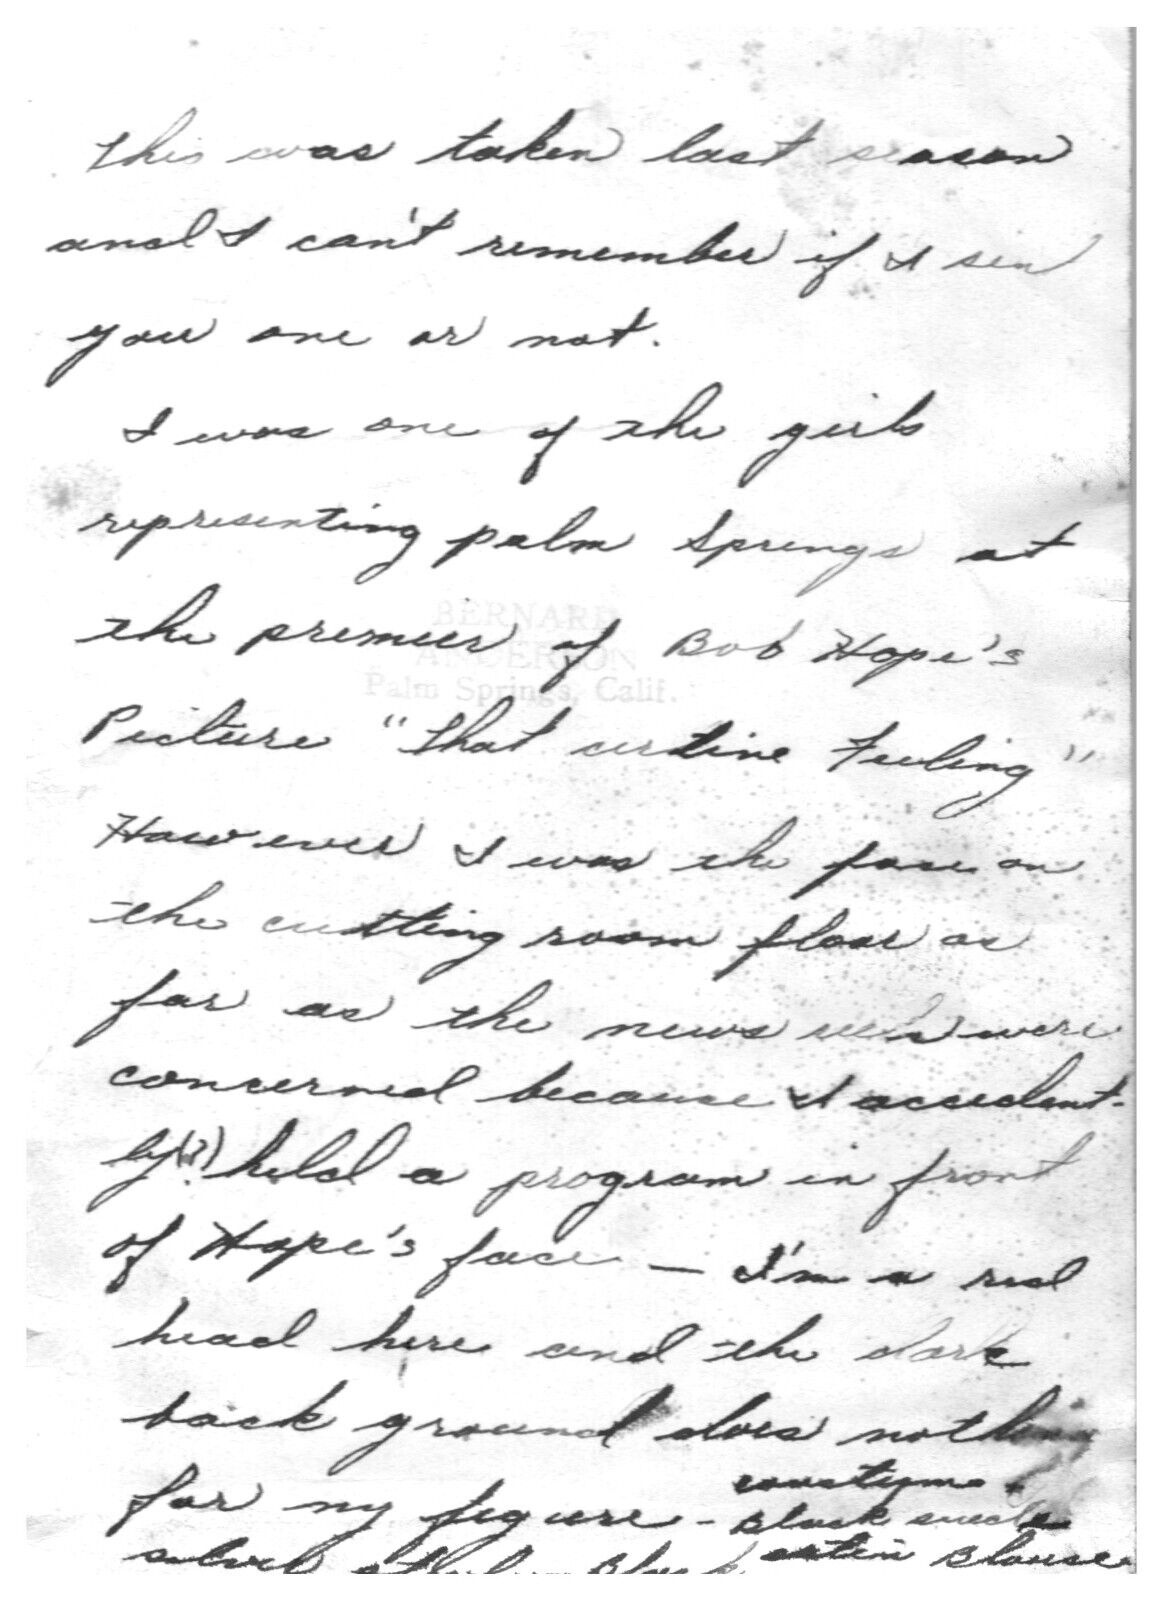 This was taken last season
and I can't remember if I sen
you one or not.
I was one of the girls
representing palm Springs at
the premier of Bob Hope's
BERNARD
ANDERSON
Palm Springs, Calif.
Picture "That certine Feeling"
However I was the face on
the cutting room floor as
far as the news reels were
concerned because I accident-
ly(?) held a program in front
of Hope's face — I'm a red
head here and the dark
back ground does nothing
for my figure - 
coustyme
Black suede
satin Blouse
Black